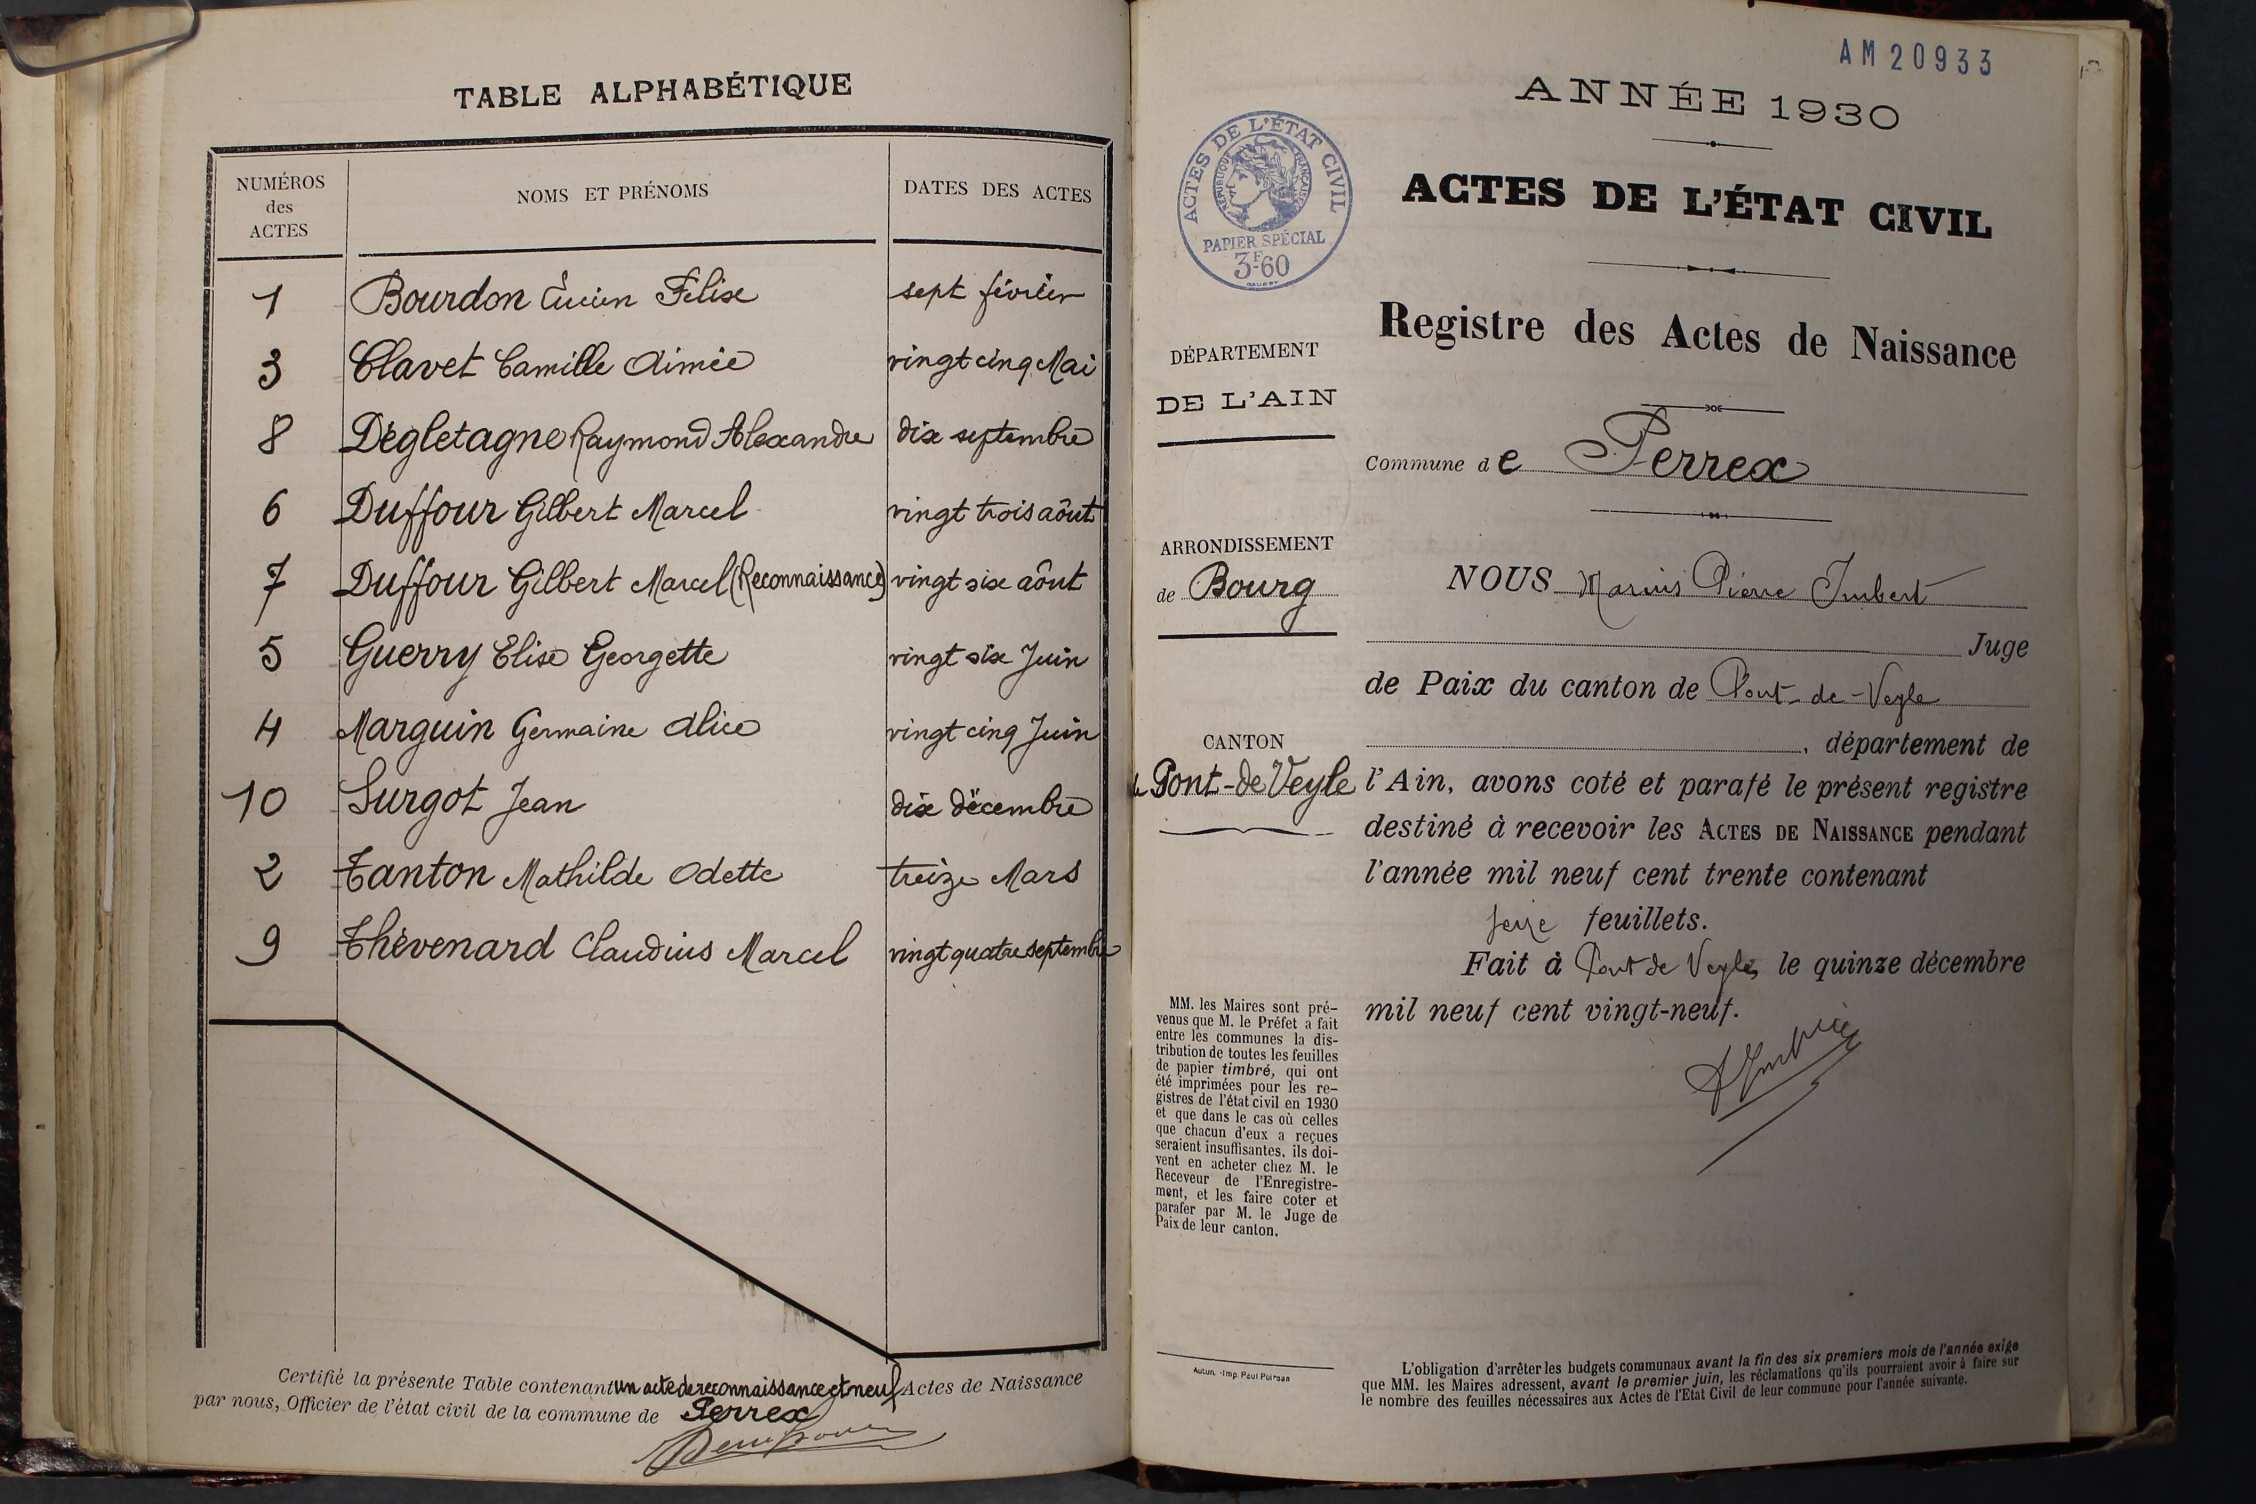 TABLE ALPHABÉTIQUE
NUMÉROS des ACTES
NOMS ET PRÉNOMS
DATES DES ACTES
1 Bourdon Lucien Félix sept février
3 Clavet Camille Aimée vingt cinq Mai
8 Dégletagne Raymond Alexandre dix septembre
6 Duffour Gilbert Marcel vingt trois aôut
7 Duffour Gilbert Marcel (Reconnaissance) vingt six aôut
5 Guerry Elise Georgette vingt six Juin
4 Marguin Germaine Alice vingt cinq Juin
10 Surgot Jean dix décembre
2 Tanton Mathilde Odette treize Mars
9 Thévenard Claudius Marcel vingt quatre septembre
Certifié la présente Table contenant un acte de reconnaissance et neuf Actes de Naissance
par nous, Officier de l'état civil de la commune de Perrex
AM20933
ANNÉE 1930
ACTES DE L'ÉTAT CIVIL
RÉPUBLIQUE FRANÇAISE
PAPIER SPÉCIAL
3F60
ACTES DE L'ÉTAT CIVIL
Registre des Actes de Naissance
DÉPARTEMENT
DE L'AIN
Commune de Perrex
ARRONDISSEMENT
de Bourg
CANTON
de Pont-de Veyle
NOUS Marius Pierre Imbert
Juge
de Paix du canton de Pont-de-Veyle
, département de
l'Ain, avons coté et parafé le présent registre
destiné à recevoir les ACTES DE NAISSANCE pendant
l'année mil neuf cent trente contenant
seize feuillets.
Fait à Pont de Veyle, le quinze décembre
mil neuf cent vingt-neuf.
MM. les Maires sont pré-
venus que M. le Préfet a fait
entre les communes la dis-
tribution de toutes les feuilles
de papier timbré, qui ont
été imprimées pour les re-
gistres de l'état civil en 1930
et que dans le cas où celles
que chacun d'eux a reçues
seraient insuffisantes, ils doi-
vent en acheter chez M. le
Receveur de l'Enregistre-
ment, et les faire coter et
parafer par M. le Juge de
Paix de leur canton.
Autun. - Imp. Paul
L'obligation d'arrêter les budgets communaux avant la fin des six premiers mois de l'année exige
que MM. les Maires adressent, avant le premier juin, les réclamations qu'ils pourraient avoir à faire sur
le nombre des feuilles nécessaires aux Actes de l'Etat Civil de leur commune pour l'année suivante.